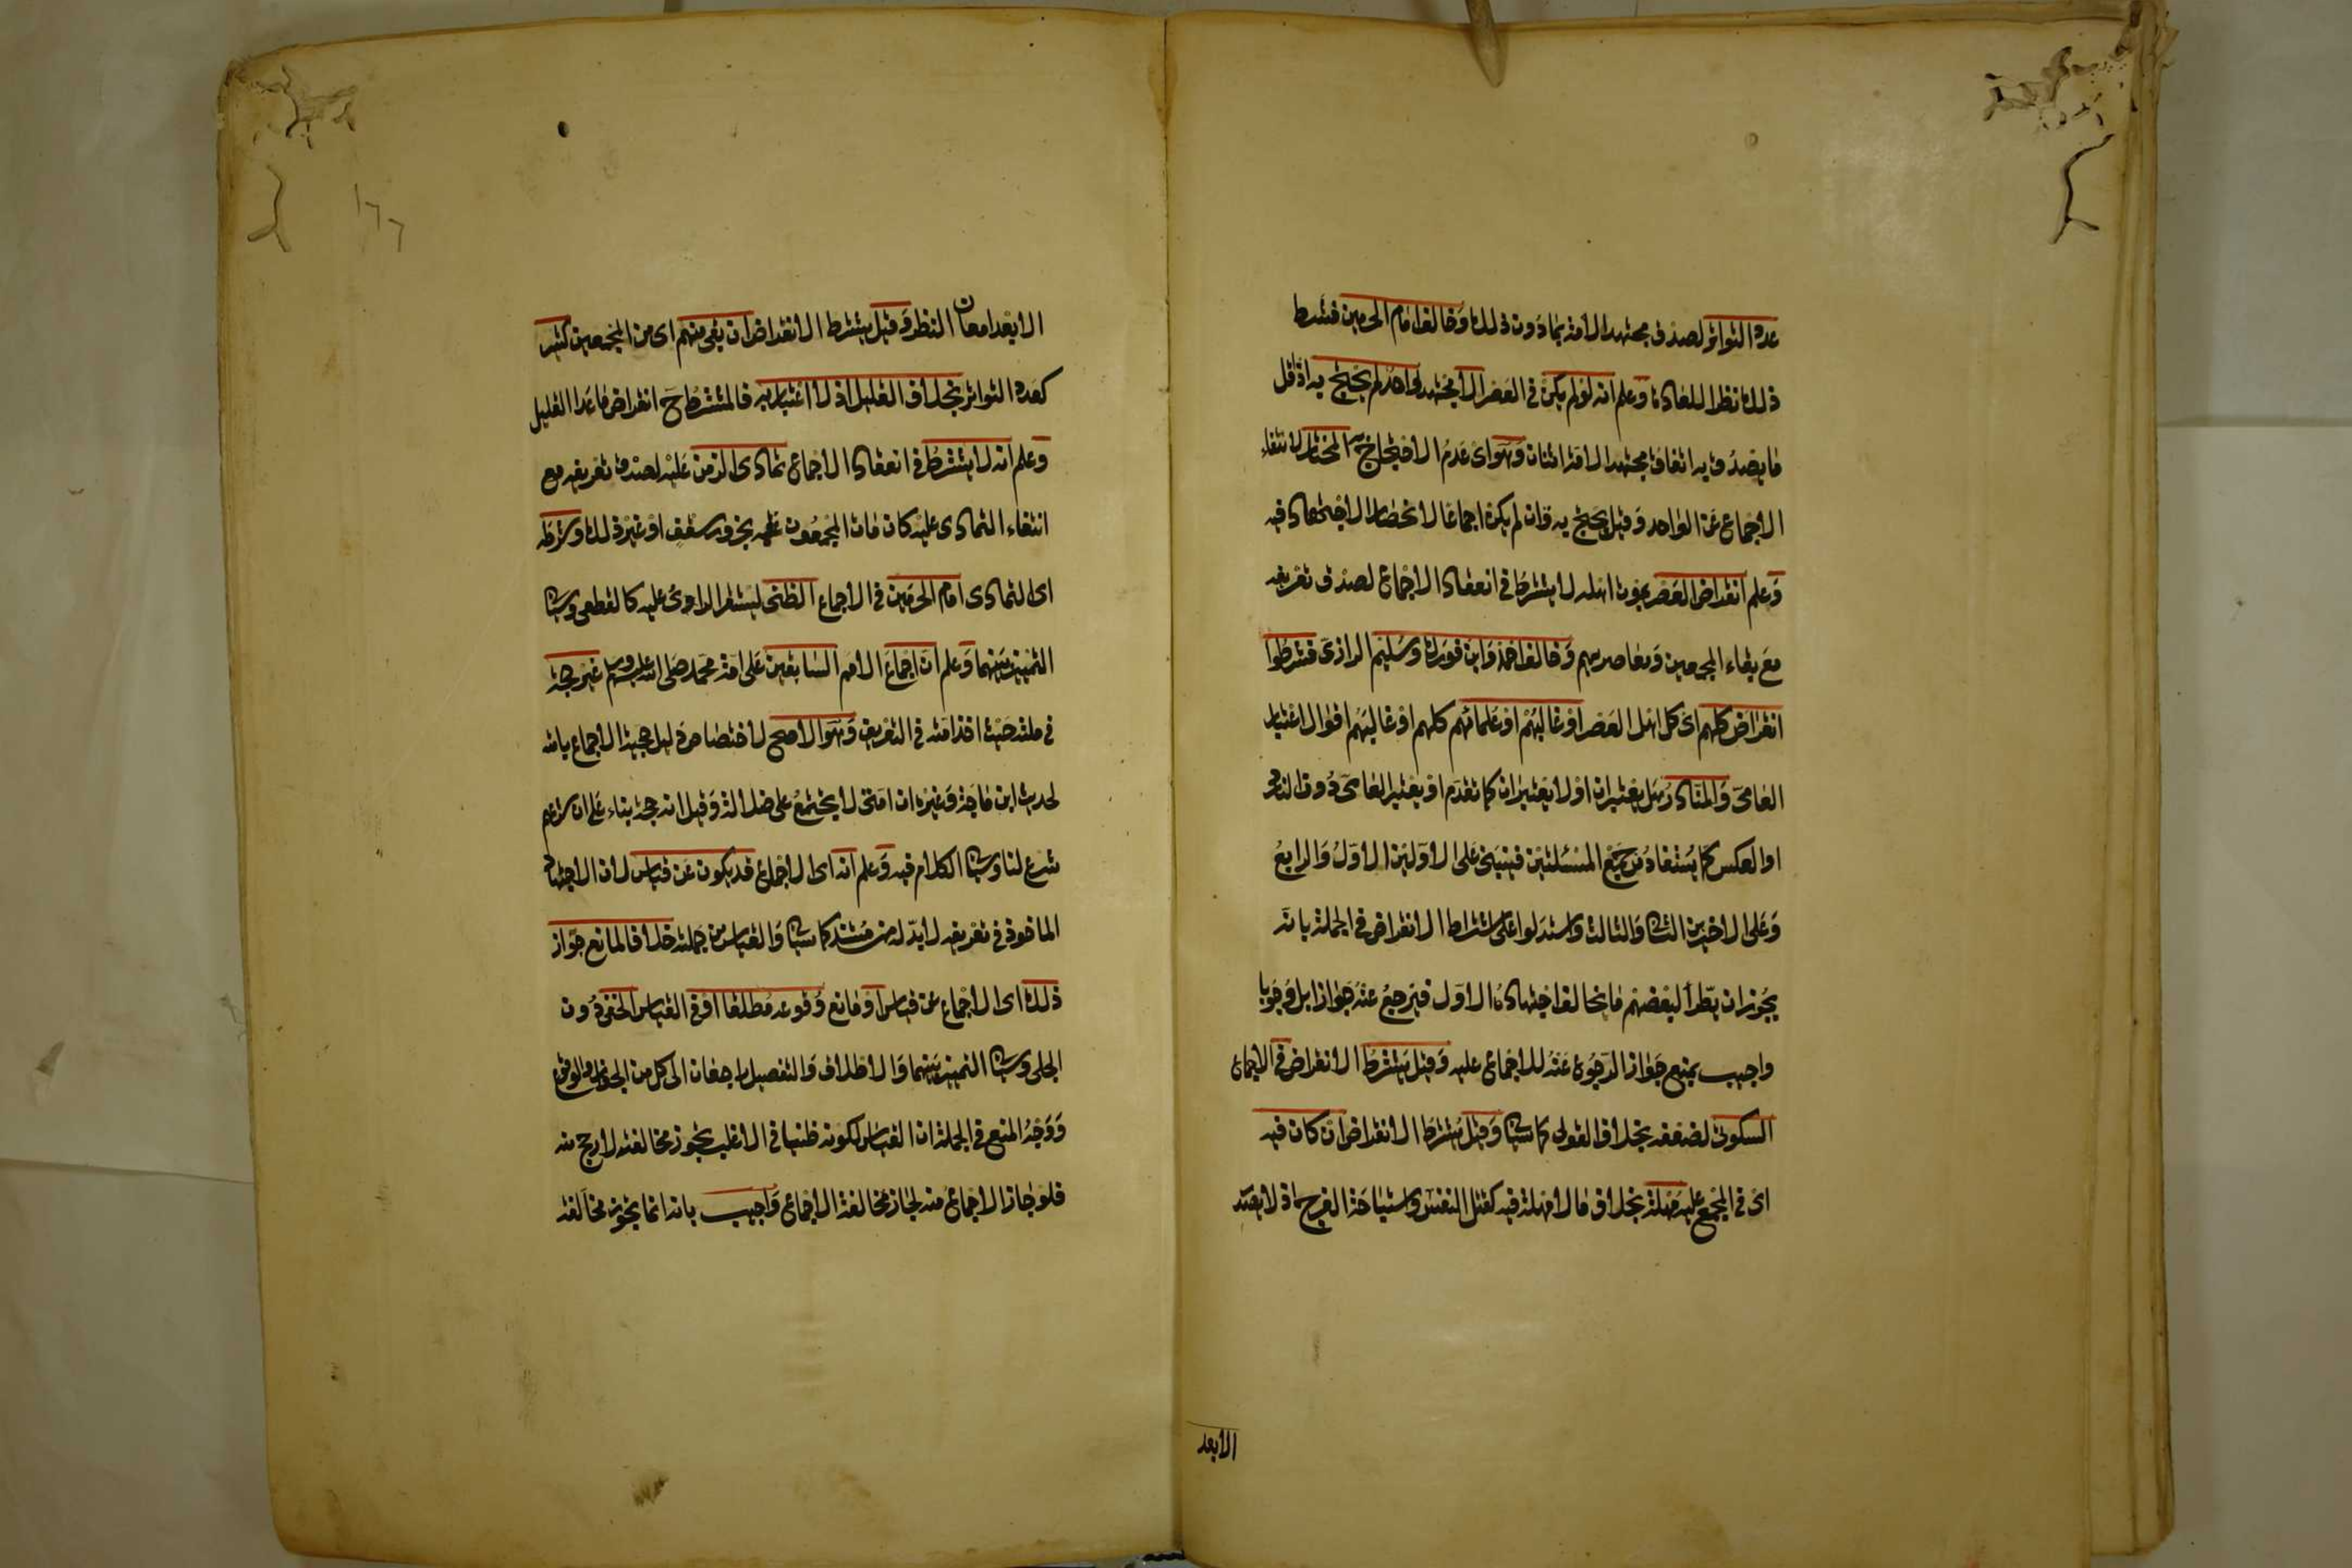 عدد التواتر لصدق مجتهد الامة بما دون ذلك وخالف امام الحرمين فشرط
ذلك نظرا للعادة وعلم انه لو لم يكن في العصر الا مجتهد واحد لم يحتج به اذ اقل
ما يصدق به اتفاق مجتهد الامة اثنان وهو اى عدم الاحتجاج به المختار لانتفاء
الاجماع عن الواحد وقيل يحتج به وان لم يكن اجماعا لانحصار الاجتهاد فيه
وعلم ان انقراض العصر بموت اهله لا يشترط في انعقاد الاجماع لصدق تعريفه
مع بقاء المجمعين ومعاصريهم وخالف احمد وابن فورك وسليم الرازى فشرطوا
انقراض كلهم اى كل اهل العصر او غالبهم او علمائهم كلهم او غالبهم اقوال اعتبار
العامى والنادر هل يعتبران او لا يعتبران كما تقدم او يعتبر العامى دون النادر
او العكس كما يستفاد من جميع المسئلتين فينبنى على الاولين الاول والرابع
وعلى الاخيرين الثانى والثالث واستدلوا على اشتراط الانقراض في الجملة بانه
يجوز ان يطرأ لبعضهم ما يخالف اجتهاده الاول فيرجع عنه جوازا بل وجوبا
واجيب بمنع جواز الرجوع عنه للاجماع عليه وقيل يشترط الانقراض في الاجماع
السكوتى لضعفه بخلاف القولى كما سياتى وقيل يشترط الانقراض ان كان فيه
اى في المجمع عليه مهلة بخلاف ما لا مهلة فيه كقتل النفس واستباحة الفرج اذ لا يصدر
الا بعد
١٦٦
الا بعد امعان النظر وقيل يشترط الانقراض ان بقى منهم اى من المجمعين كثير
كعدد التواتر بخلاف القليل اذ لا اعتبار به فالمشترط ح انقراض ما عدا القليل
وعلم انه لا يشترط في انعقاد الاجماع تمادى الزمن عليه لصدق تعريفه مع
انتفاء التمادى عليه كان مات المجمعون عليه بخرور سقف او غير ذلك وشرطه
اى التمادى امام الحرمين في الاجماع الظنى ليستقر الراى عليه كالقطعى وسياتى
التمييز بينهما وعلم ان اجماع الامم السابقين على امة محمد صلى الله عليه وسلم غير حجة
في ملته حيث اخذ امته في التعريف وهو الاصح لاختصاص دليل حجية الاجماع بامته
لحديث ابن ماجة وغيره ان امتى لا يجتمع على ضلالة وقيل انه حجة بناء على ان شرعهم
شرع لنا وسياتى الكلام فيه وعلم انه اى الاجماع قد يكون عن قياس لان الاجتهاد
الماخوذ في تعريفه لا بد له من مستند كما سياتى والقياس من جملته خلافا لمانع جواز
ذلك اى الاجماع عن قياس او مانع وقوعه مطلقا او في القياس الخفى دون
الجلى وسياتى التمييز بينهما والاطلاق والتفصيل راجعان الى كل من الجواز والوقوع
ووجه المنع في الجملة ان القياس لكونه ظنيا في الاغلب يجوز مخالفته لارجح منه
فلو جاز الاجماع منه لجاز مخالفة الاجماع واجيب بانه انما يجوز مخالفة